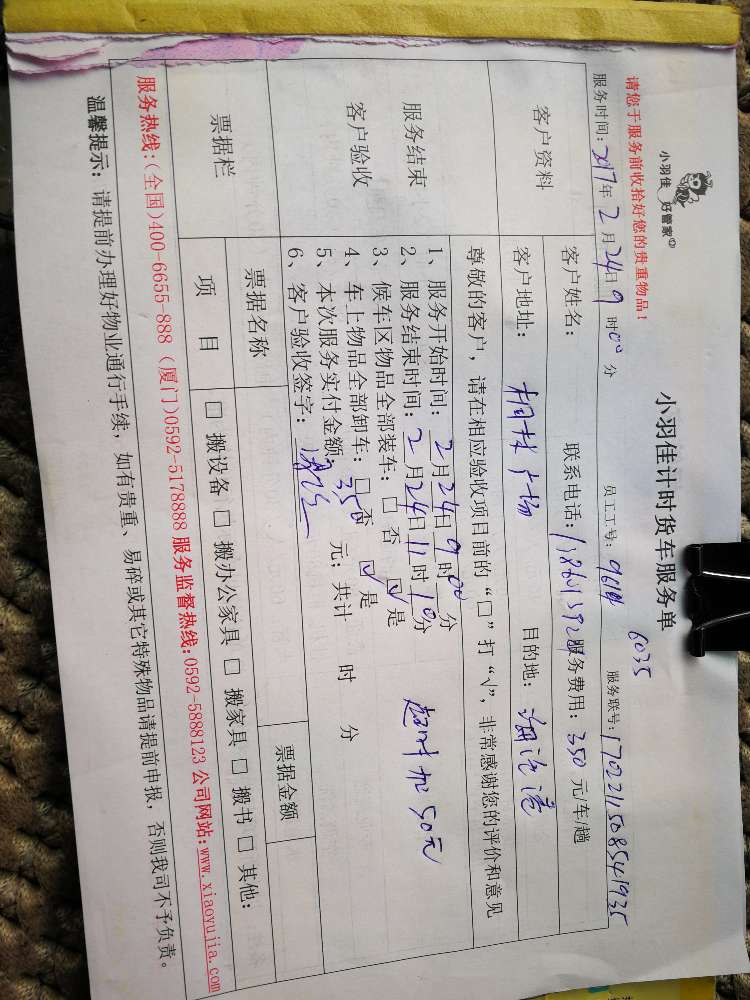 小羽佳 好管家
小羽佳计时货车服务单
请您于服务前收拾好您的贵重物品!
员工工号: 9614
6035
服务联号: 17022115085541935
服务时间: 2017年 2 月 24日 9 时00 分
客户资料
客户姓名:
联系电话:
服务费用: 350 元/车/趟
客户地址:
目的地:
尊敬的客户，请在相应验收项目前的“□”打“√”，非常感谢您的评价和意见
服务结束
客户验收
1、服务开始时间: 2月24日9时00分
2、服务结束时间: 2月24日11时10分
3、候车区物品全部装车: □ 否 ☑ 是
4、车上物品全部卸车: □ 否 ☑ 是
5、本次服务实付金额: 350 元; 共计 时 分
6、客户验收签字:
超时加50元
票据栏
票据名称
票据金额
项 目
□ 搬设备 □ 搬办公家具 □ 搬家具 □ 搬书 □ 其他:
服务热线:(全国)400-6655-888 (厦门)0592-5178888 服务监督热线:0592-5888123 公司网站:www.xiaoyujia.com
温馨提示: 请提前办理好物业通行手续，如有贵重、易碎或其它特殊物品请提前申报，否则我司不予负责。